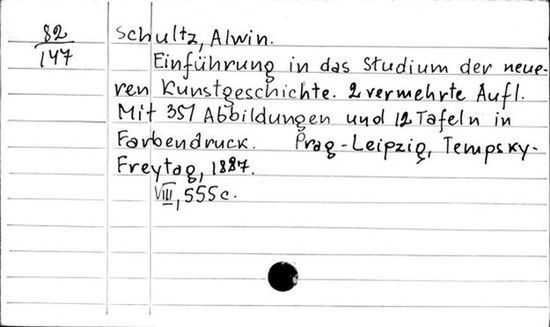 82
147
Schultz, Alwin.
Einführung in das Studium der neue-
ren Kunstgeschichte. 2 vermehrte Aufl.
Mit 351 Abbildungen und 12 Tafeln in
Farbendruck. Prag-Leipzig, Tempsky-
Freytag, 1887.
VIII, 555 c.